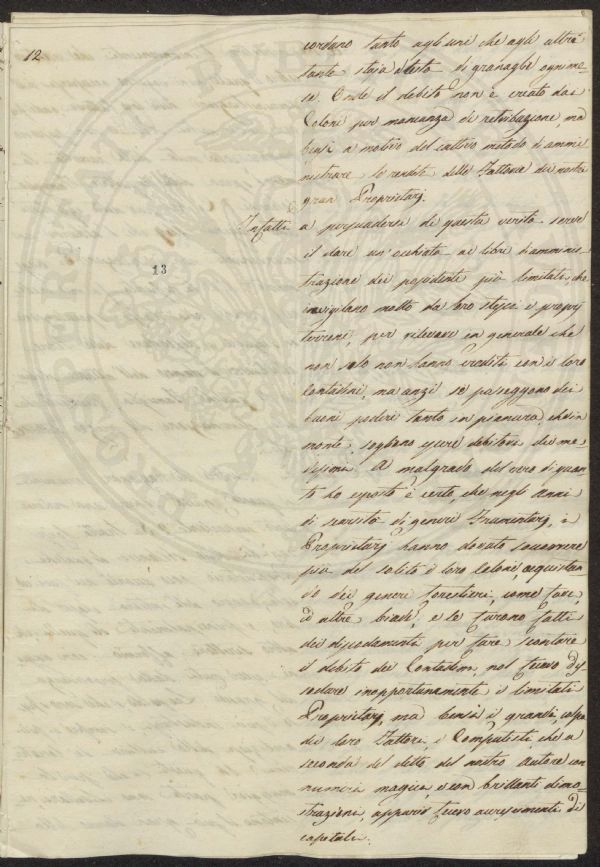 12.
cordano tanto agli uni che agli altri
tante staja a testa di granaglie ogni me-
se. Onde il debito non è creato dai
Coloni per mancanza di retribuzione, ma
bensì a motivo del cattivo metodo di ammi-
nistrare le rendite delle Fattorie dei nostri
gran Proprietarj.
Infatti a persuadersi di questa verità serve
il dare un'occhiata ai libri d'amminis-
trazione dei possidenti più limitati, che
invigilano molto da loro stessi i proprj
terreni, per rilevare in generale che
non solo non hanno crediti con i loro
Contadini, ma anzi se posseggono dei
buoni poderi tanto in pianura, che in
monte, sogliono essere debitori dei me-
desimi. A malgrado del vero di quan-
to ho esposto è certo, che negli anni
di scarsità di generi Frumentarj, i
Proprietarj hanno dovuto soccorrere
più del solito i loro Coloni, acquistan-
do dei generi forestieri, come fave,
ed altre biade, e se furono fatti
dei disodamenti per fare scontare
il debito dei Contadini, nol fecero
inopportunamente i limitati
Proprietarj, ma bensì i grandi, colpa
dei loro Fattori, e Computisti, che a
seconda del detto del nostro Autore con
numeri magici, e con brillanti dimo-
strazioni, apparir fecero accrescimenti di
capitali.
13